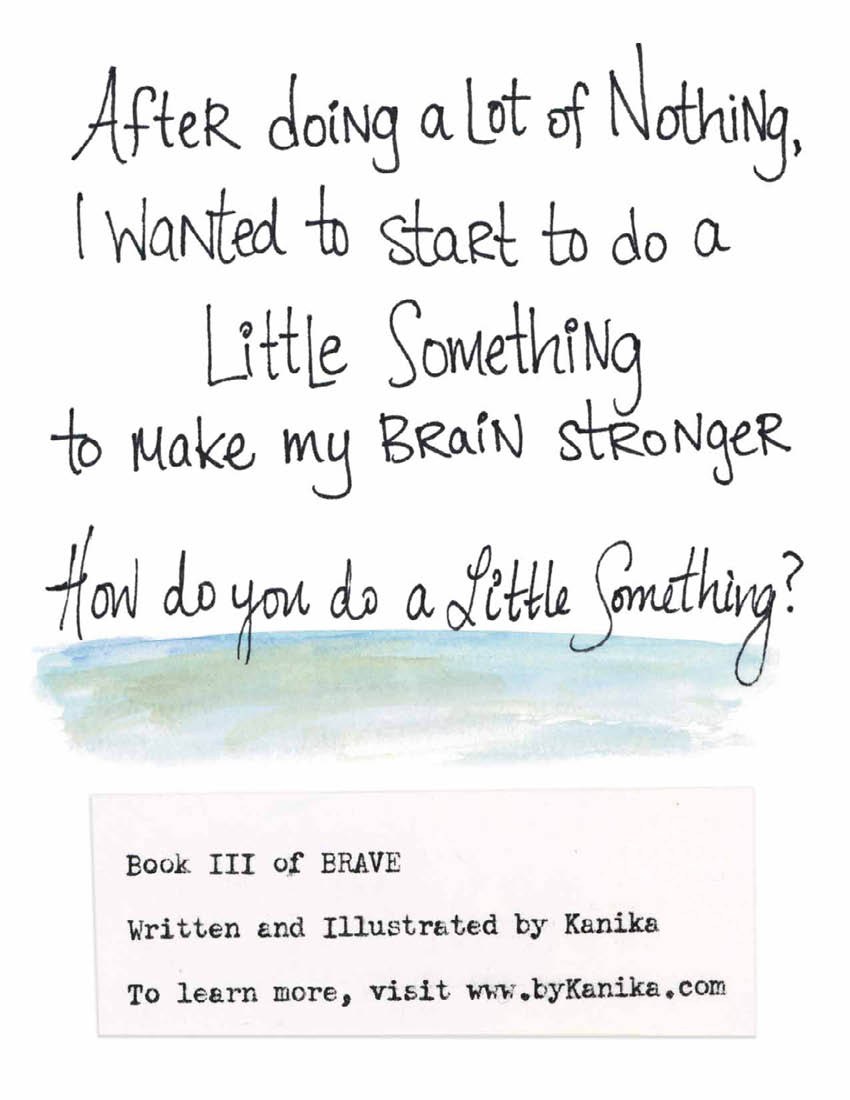 After doing a Lot of Nothing,
I wanted to start to do a
Little Something
to make my Brain stronger
How do you do a Little Something?
Book III of BRAVE
Written and Illustrated by Kanika
To learn more, visit www.byKanika.com